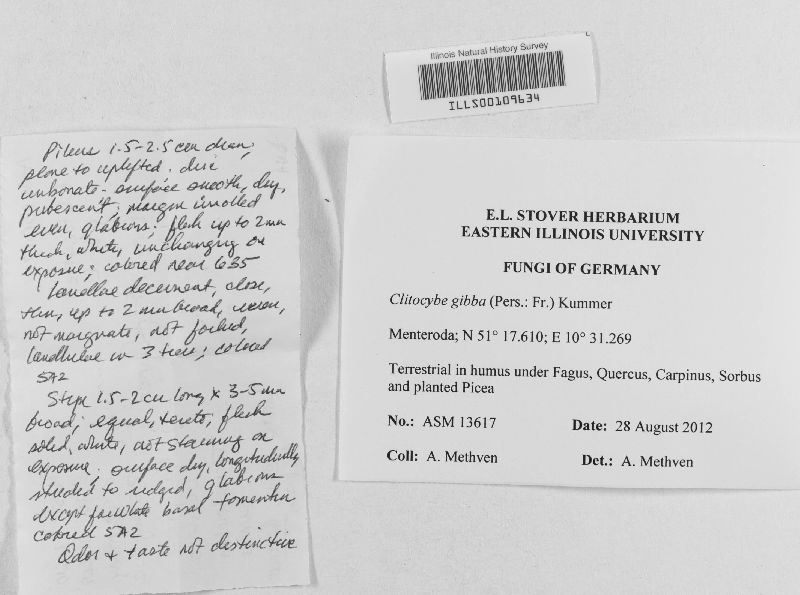 Illinois Natural History Survey
ILLS00109634
Pileus 1.5-2.5 cm diam;
plane to uplifted. disc
umbonate - surface smooth, dry,
pubescent; margin inrolled
even, glabrous; flesh up to 2 mm
thick, white, unchanging on
exposure; colored near 6B5
Lamellae decurrent, close,
thin, up to 2 mm broad,
not marginate, not forked,
lamellulae in 3 tiers; colored
5A2
Stipe 1.5-2 cm long x 3-5 mm
broad; equal, terete, flesh
solid, white, not staining on
exposure. surface dry, longitudinally
striated to ridged, glabrous
except for white basal tomentum
colored 5A2
Odor + taste not distinctive
E.L. STOVER HERBARIUM
EASTERN ILLINOIS UNIVERSITY
FUNGI OF GERMANY
Clitocybe gibba (Pers.: Fr.) Kummer
Menteroda; N 51° 17.610; E 10° 31.269
Terrestrial in humus under Fagus, Quercus, Carpinus, Sorbus
and planted Picea
No.: ASM 13617 Date: 28 August 2012
Coll: A. Methven Det.: A. Methven